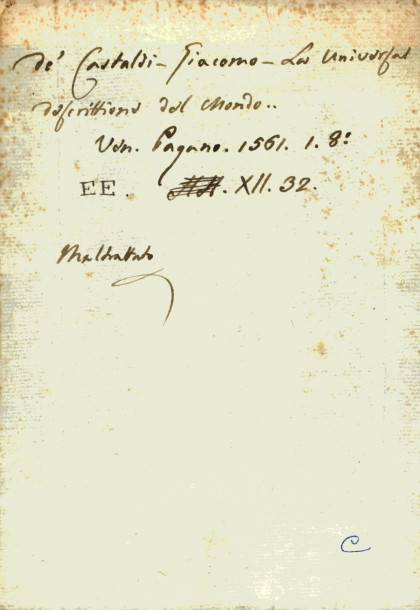 de' Castaldi - Giacomo - La Universal
descrittione del Mondo..
Ven. Pagano. 1561. 1. 8:
EE. . XII. 32.
Maltrattato
C